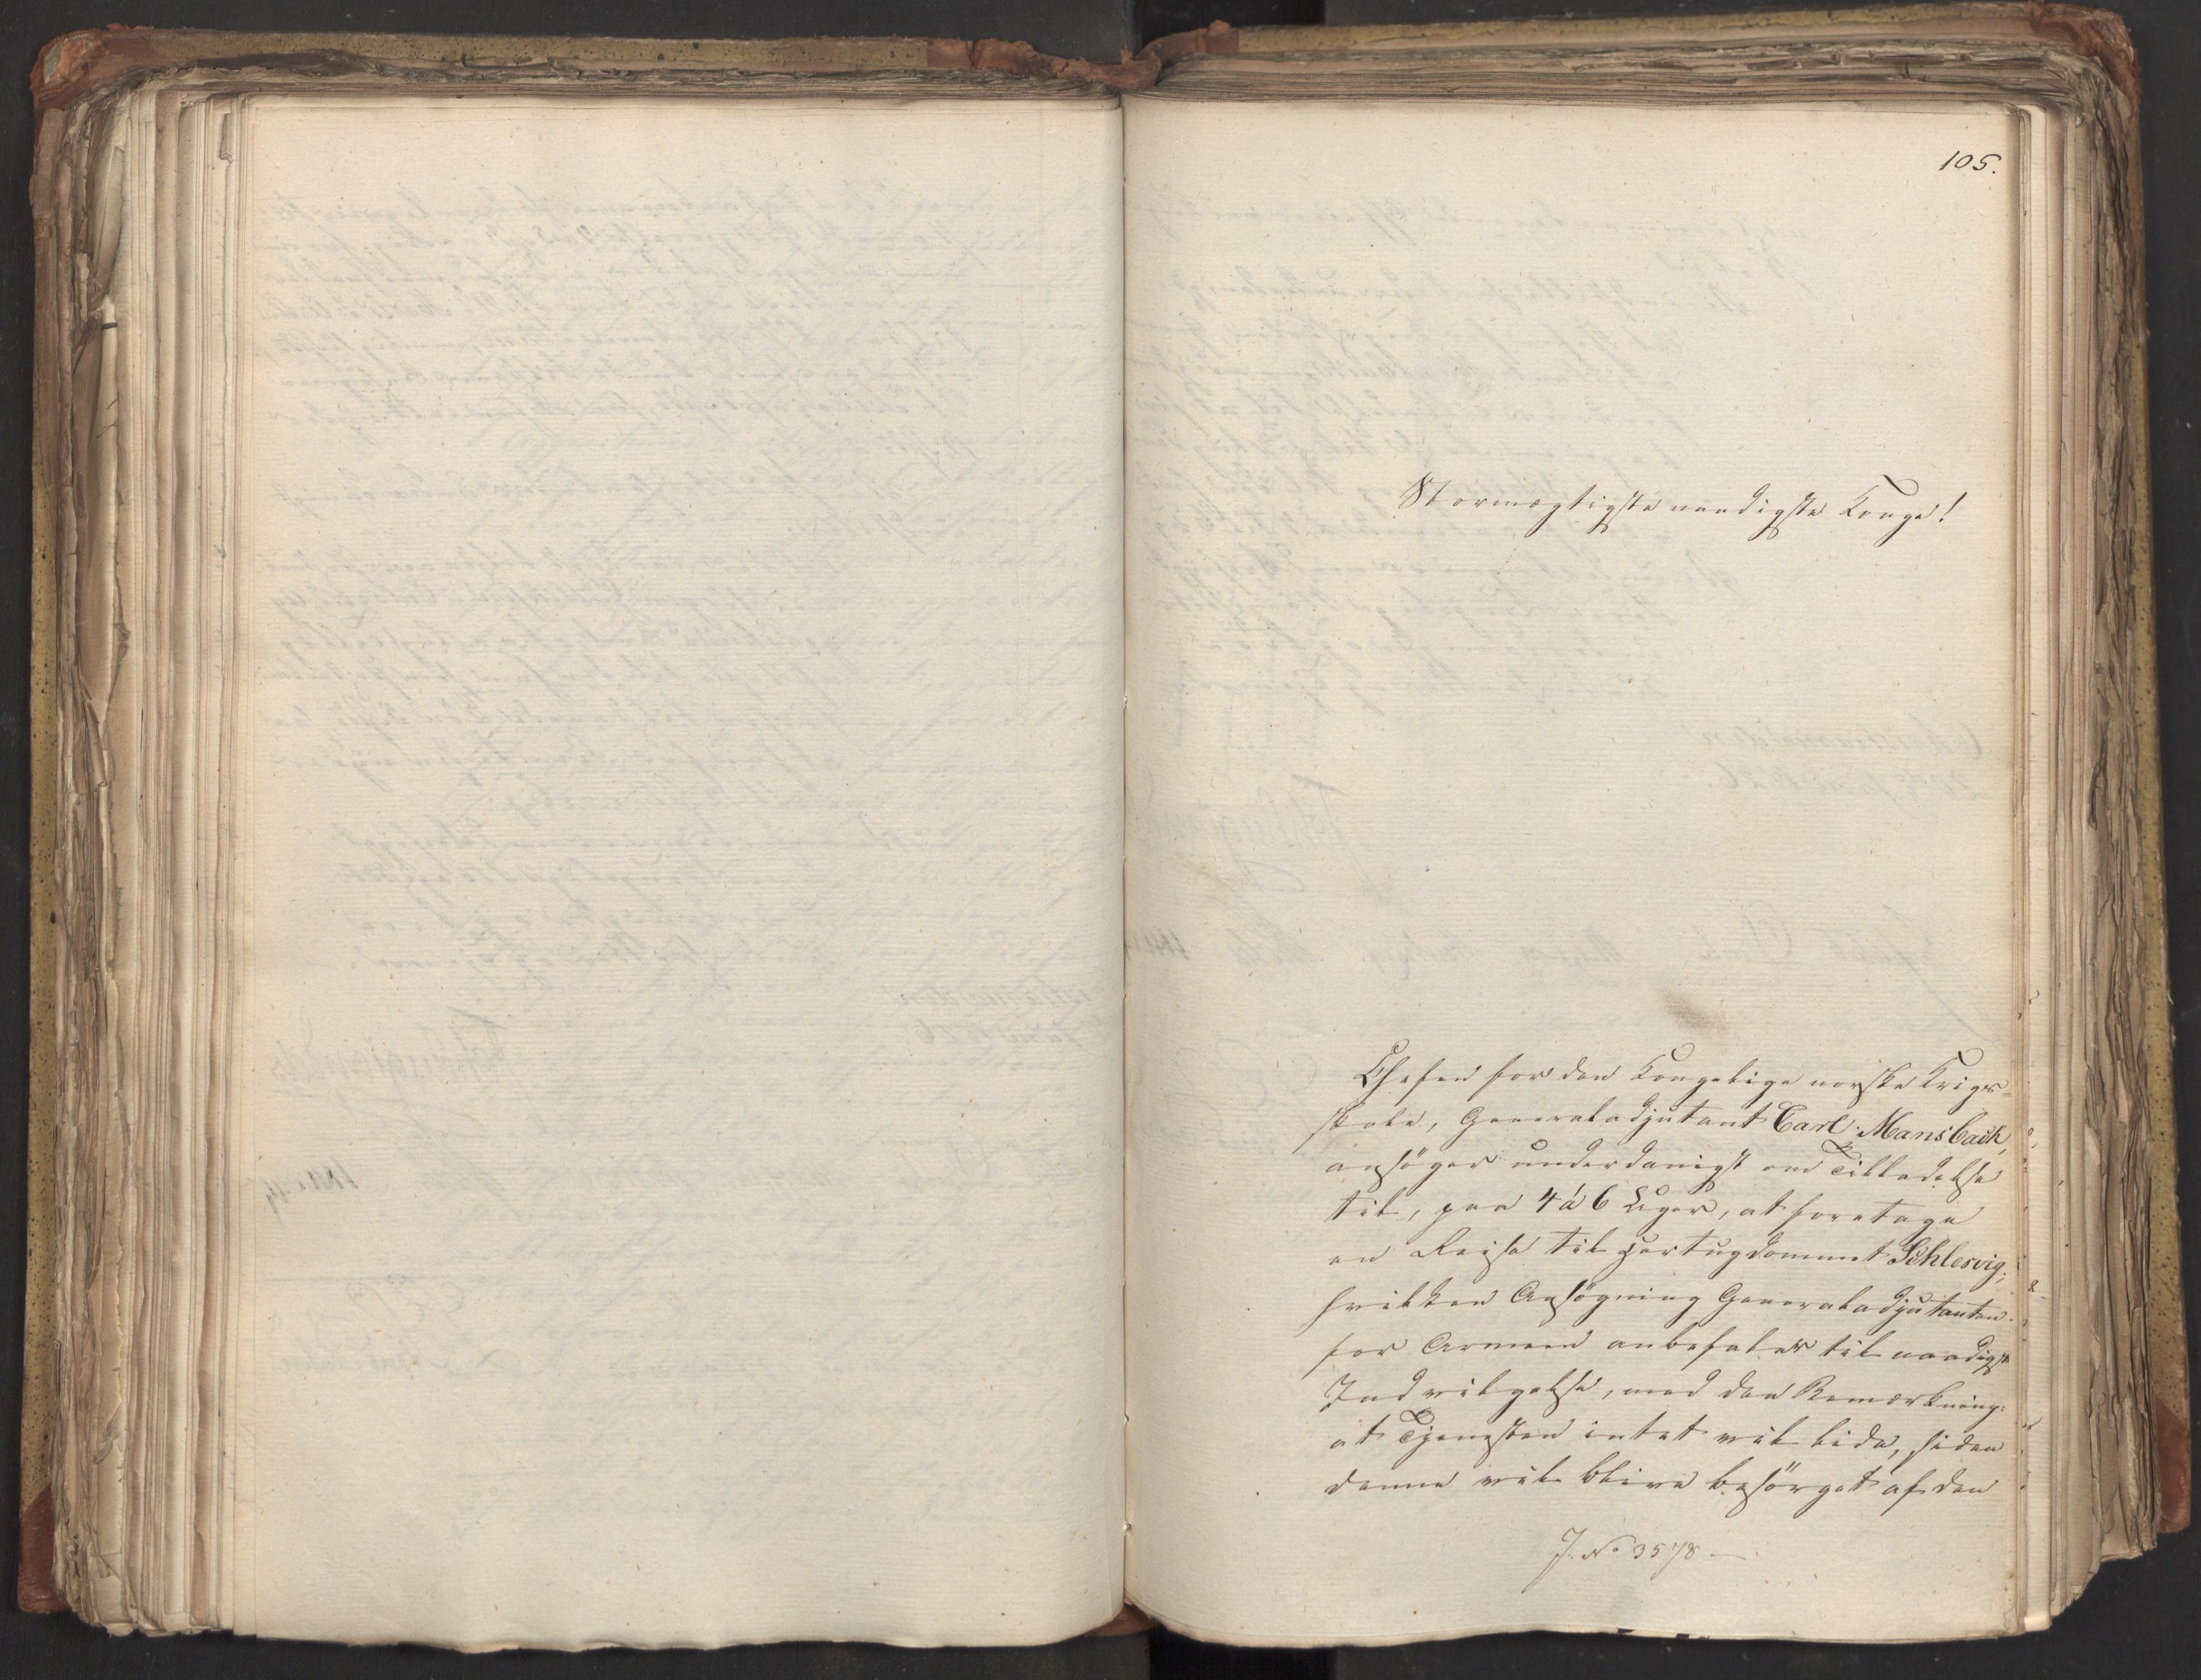 105.
Stormægtigste naadigste Konge!
Chefen for den Kongelige norske Krigs-
skole, Generaladjutant Carl Mansbach,
ansöger underdanigst om Tilladelse
til, paa 4 á 6 Uger, at foretage
en Reise til Hertugdommet Schlesvig;
hvilken Ansögning Generaladjutanten
for Armeen anbefaler til naadigst
Indvilgelse, med den Bemærkning:
at Tjenesten intet vil lide, siden
denne vil blive besörget af den
J. No 3578 —